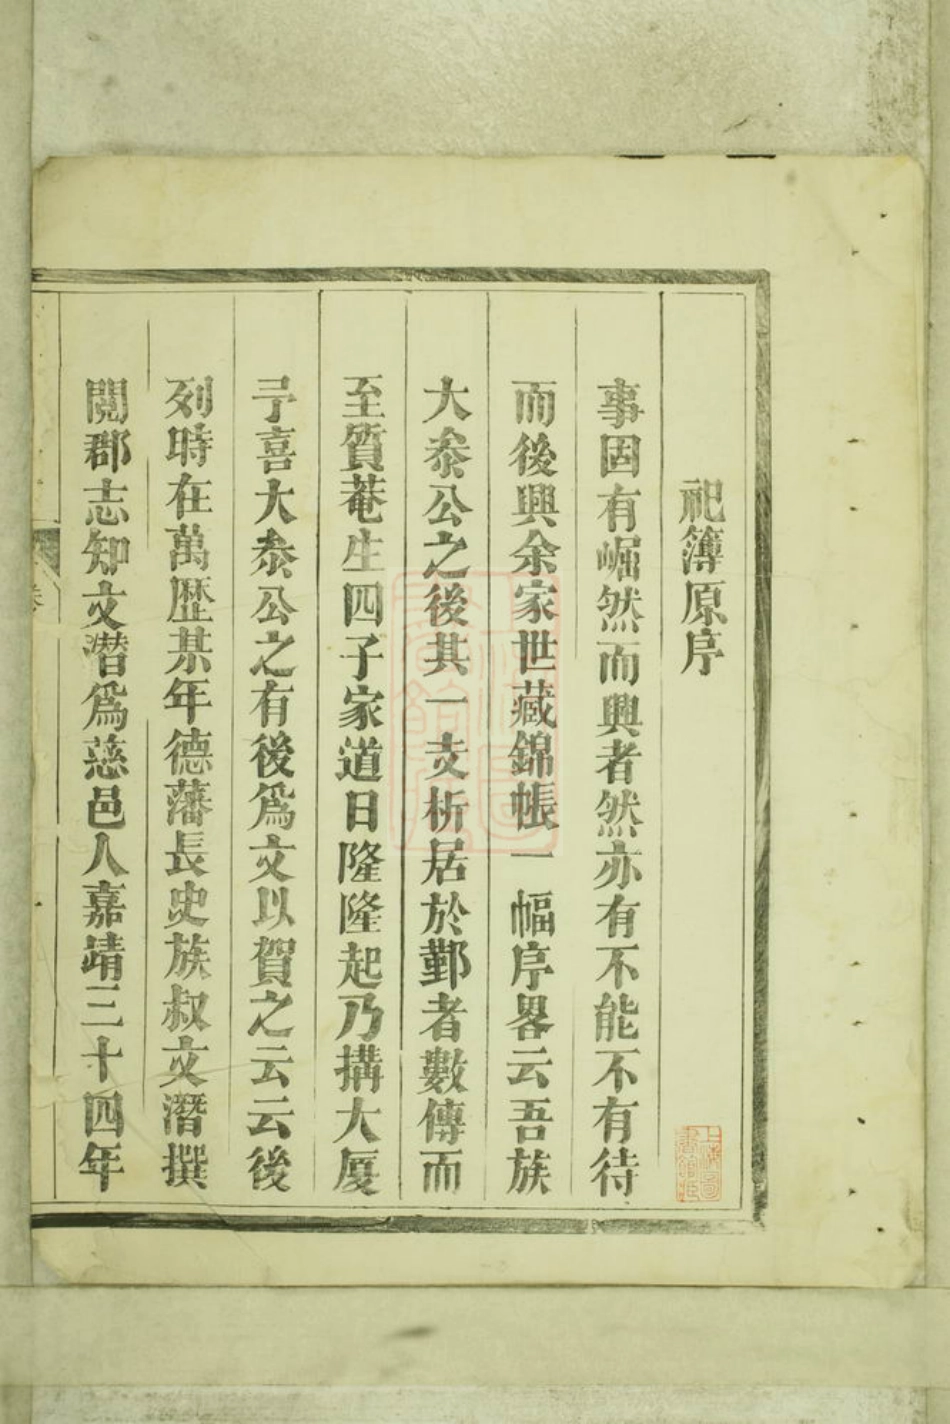 祀簿原序
事固有崛然而興者然亦有不能不有待
而後興余家世藏錦帳一幅序畧云吾族
大泰公之後其一支析居於鄞者數傳而
至質菴生四子家道日隆隆起乃搆大厦
予喜大泰公之有後爲文以賀之云云後
列時在萬歷某年德藩長史族叔文潛撰
閱郡志知文潛爲慈邑人嘉靖三十四年